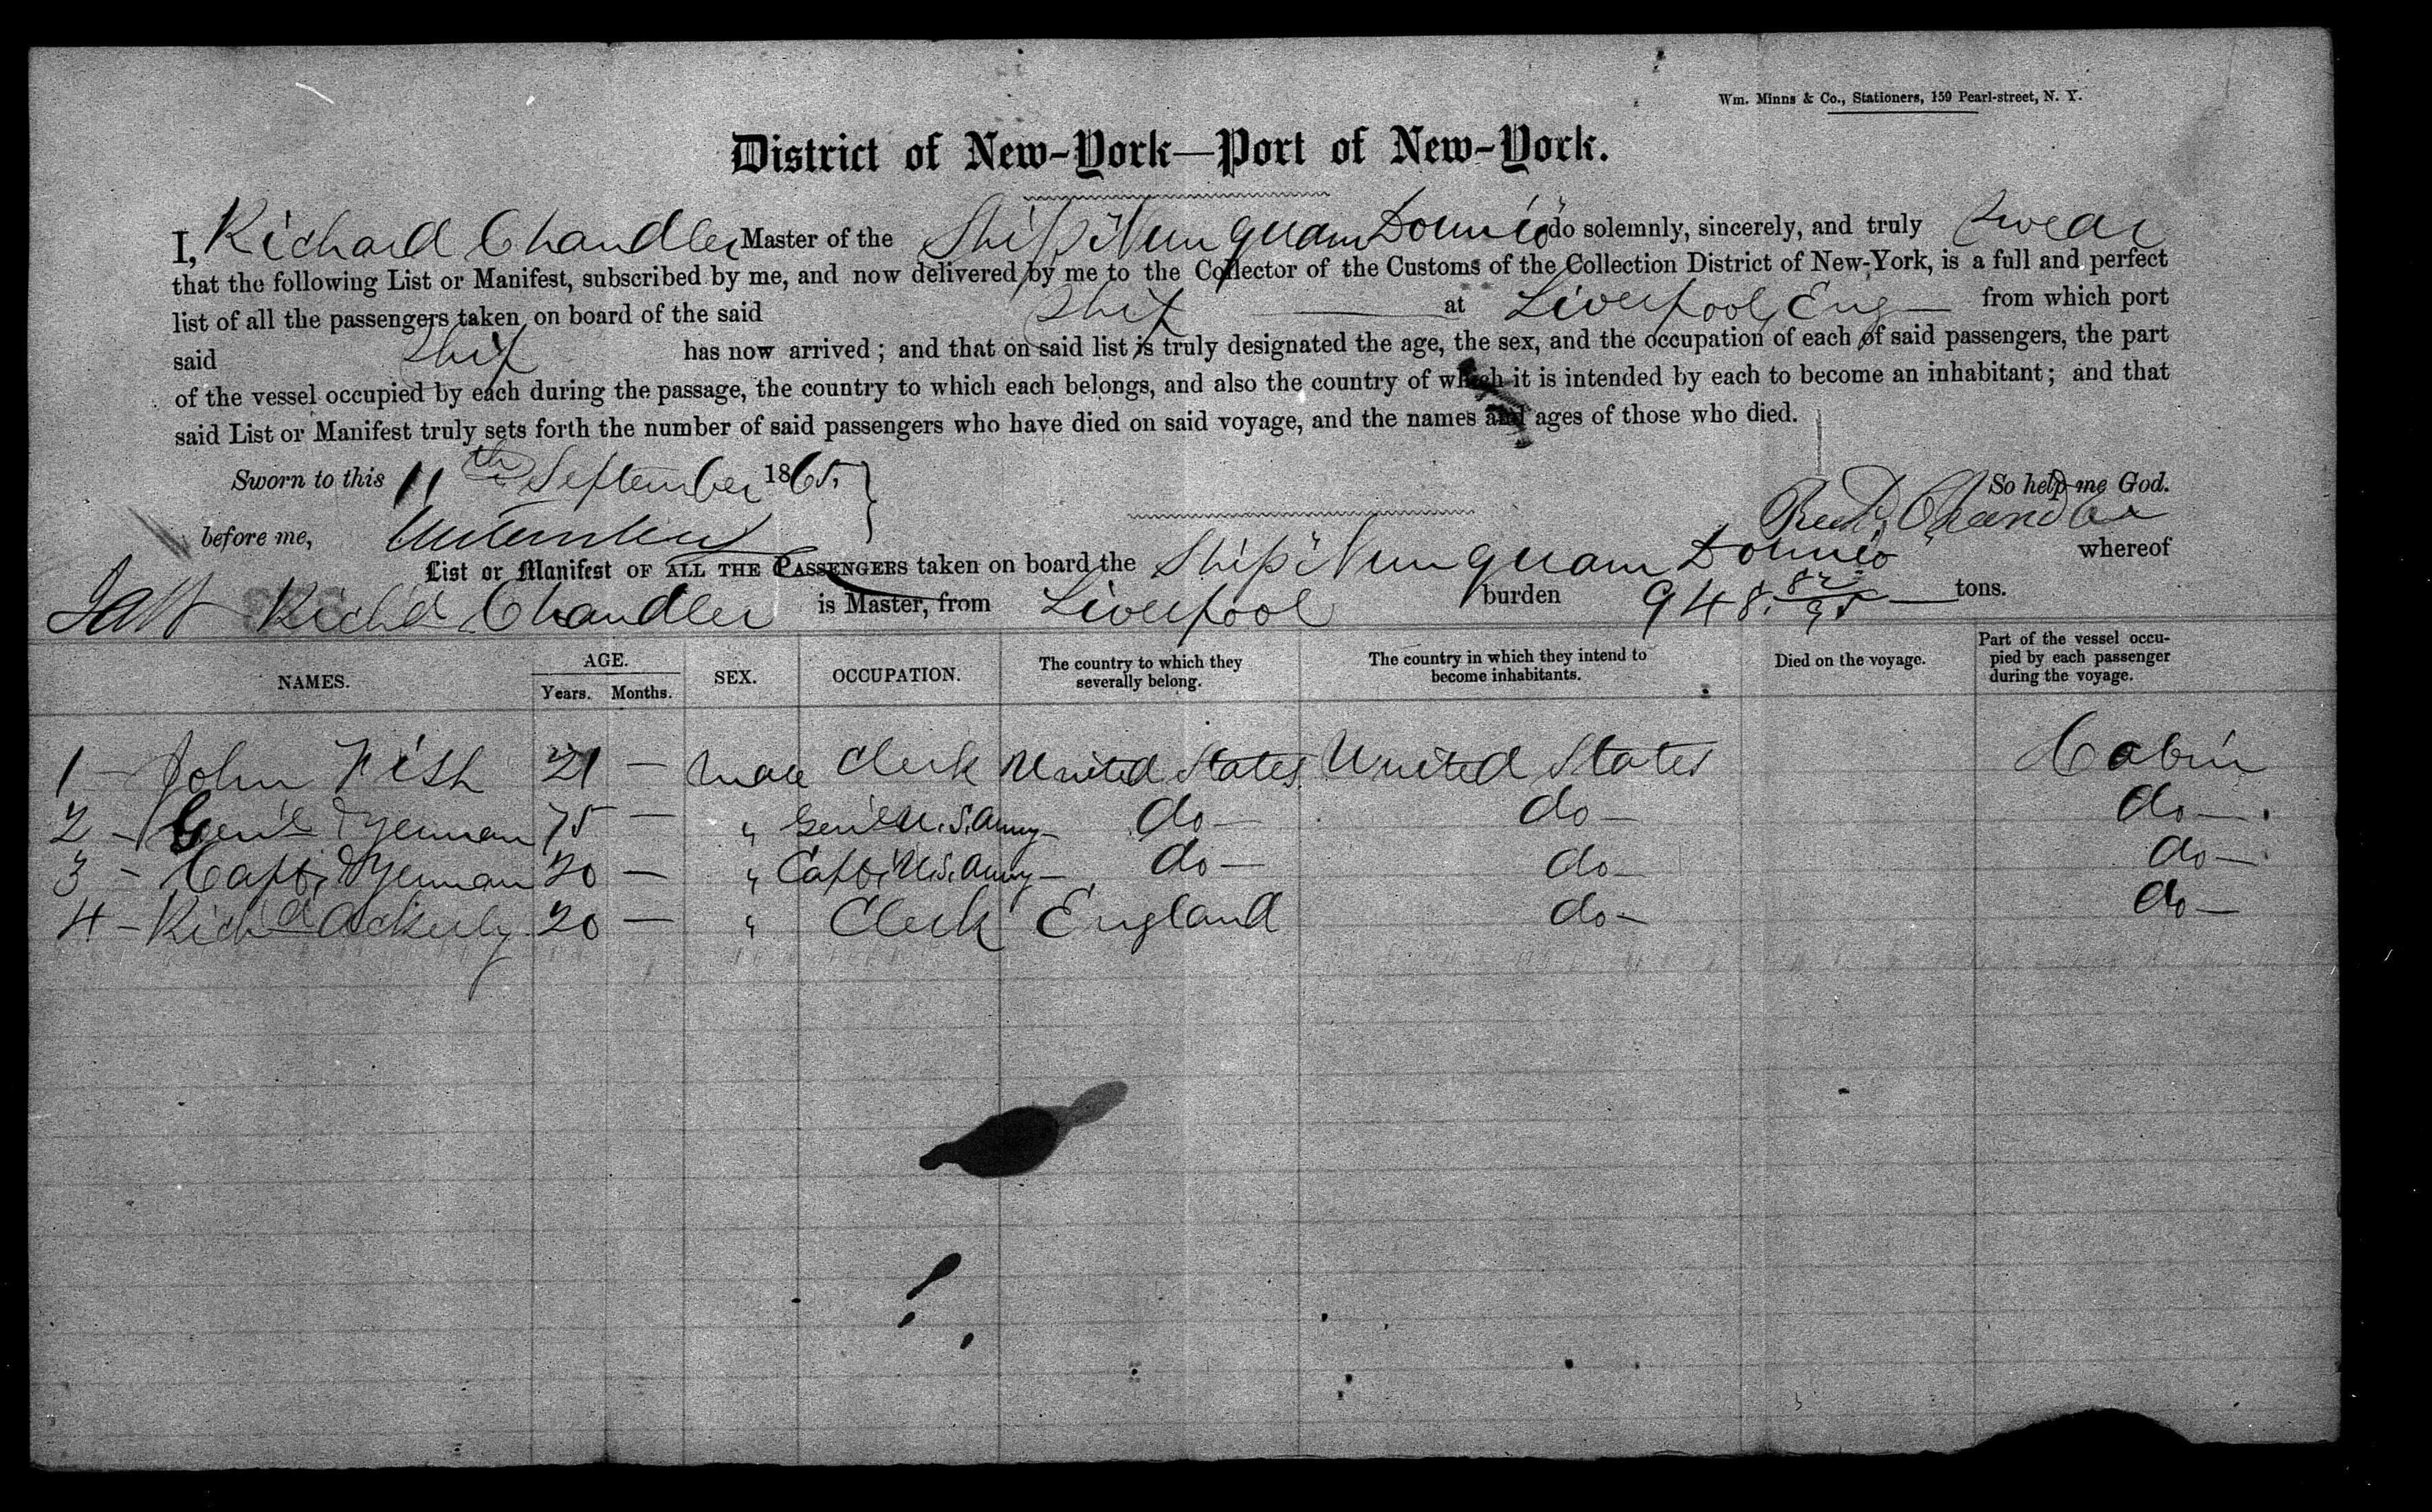 Wm. Minns & Co., Stationers, 159 Pearl-street, N. Y.
District of New-York—Port of New-York.
I, Richard Chandler Master of the Ship "Nunquam Dormio" do solemnly, sincerely, and truly swear
that the following List or Manifest, subscribed by me, and now delivered by me to the Collector of the Customs of the Collection District of New-York, is a full and perfect
list of all the passengers taken on board of the said Ship at Liverpool, Eng— from which port
said Ship has now arrived; and that on said list is truly designated the age, the sex, and the occupation of each of said passengers, the part
of the vessel occupied by each during the passage, the country to which each belongs, and also the country of which it is intended by each to become an inhabitant; and that
said List or Manifest truly sets forth the number of said passengers who have died on said voyage, and the names and ages of those who died.
Sworn to this 11th September 1865. So help me God.
before me, Richd. Chandler
List or Manifest OF ALL THE PASSENGERS taken on board the Ship "Nunquam Dormio" whereof
Rich'd Chandler is Master, from Liverpool burden 948. 82/95 tons.
NAMES. AGE. Years. Months. SEX. OCCUPATION. The country to which they severally belong. The country in which they intend to become inhabitants. Died on the voyage. Part of the vessel occupied by each passenger during the voyage.
1 - John Fish 21 — Male Clerk United States United States Cabin
2 - Gen'l 75 — " Gen'l U.S. Army — do — do — do —
3 - Capt. 20 — " Capt. U.S. Army — do — do — do —
4 - Rich'd Ackerly 20 — " Clerk England do — do —